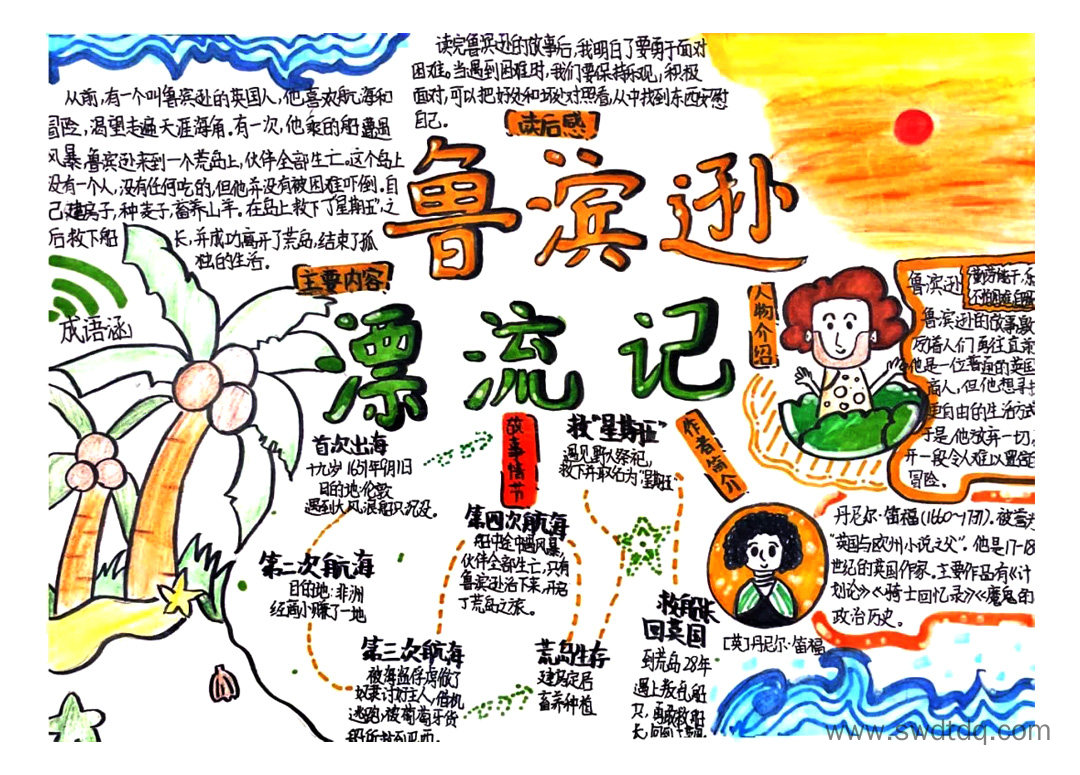 读完鲁滨逊的故事后,我明白了要勇于面对
困难。当遇到困难时,我们要保持乐观,积极
面对,可以把好处和坏处对照看,从中找到东西安慰
自己。
读后感
从前,有一个叫鲁滨逊的英国人,他喜欢航海和
冒险,渴望走遍天涯海角。有一次,他乘的船遭遇
风暴,鲁滨逊来到一个荒岛上,伙伴全部生亡。这个岛上
没有一个人,没有任何吃的,但他并没有被困难吓倒。自
己建房子,种麦子,畜养山羊。在岛上救下了"星期五",之
后救下船长,并成功离开了荒岛,结束了孤
独的生活。
主要内容
鲁滨逊
漂流记
成语涵
人物介绍
鲁滨逊
鲁滨逊的故事激
励着人们勇往直前
他是一位普通的英国
商人,但他想寻找
更自由的生活方式
于是他放弃一切,
开一段令人难以置信
冒险。
作者简介
丹尼尔·笛福(1660~1731).被誉为
"英国与欧州小说之父"。他是17-18
世纪的英国作家。主要作品有《计
划论》《骑士回忆录》《魔鬼的
政治历史。
[英]丹尼尔·笛福
故事情节
首次出海
十九岁1651年9月1日
目的地:伦敦
遇到大风浪船只沉没。
第二次航海
目的地:非洲
经商小赚了一地
第三次航海
被海盗俘虏做了
奴隶讨好主人,借机
逃跑,被葡萄牙货
船所救到巴西。
第四次航海
船中途中遇风暴,
伙伴全部生亡,只有
鲁滨逊活下来,开启
了荒岛之旅。
荒岛生存
建房定居
畜养种植
救"星期五"
遇见野人祭祀,
救下并取名为"星期五"
救船长
回英国
到荒岛28年
遇上叛乱船
只,勇敢救船
长,回到了英国
www.swdtdq.com